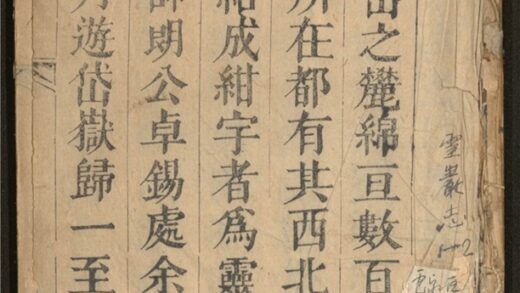 之麓綿亘數百
所在都有其西北
結成紺宇者爲靈
師朗公卓錫處余
遊岱嶽歸一至
靈巖志
1-2